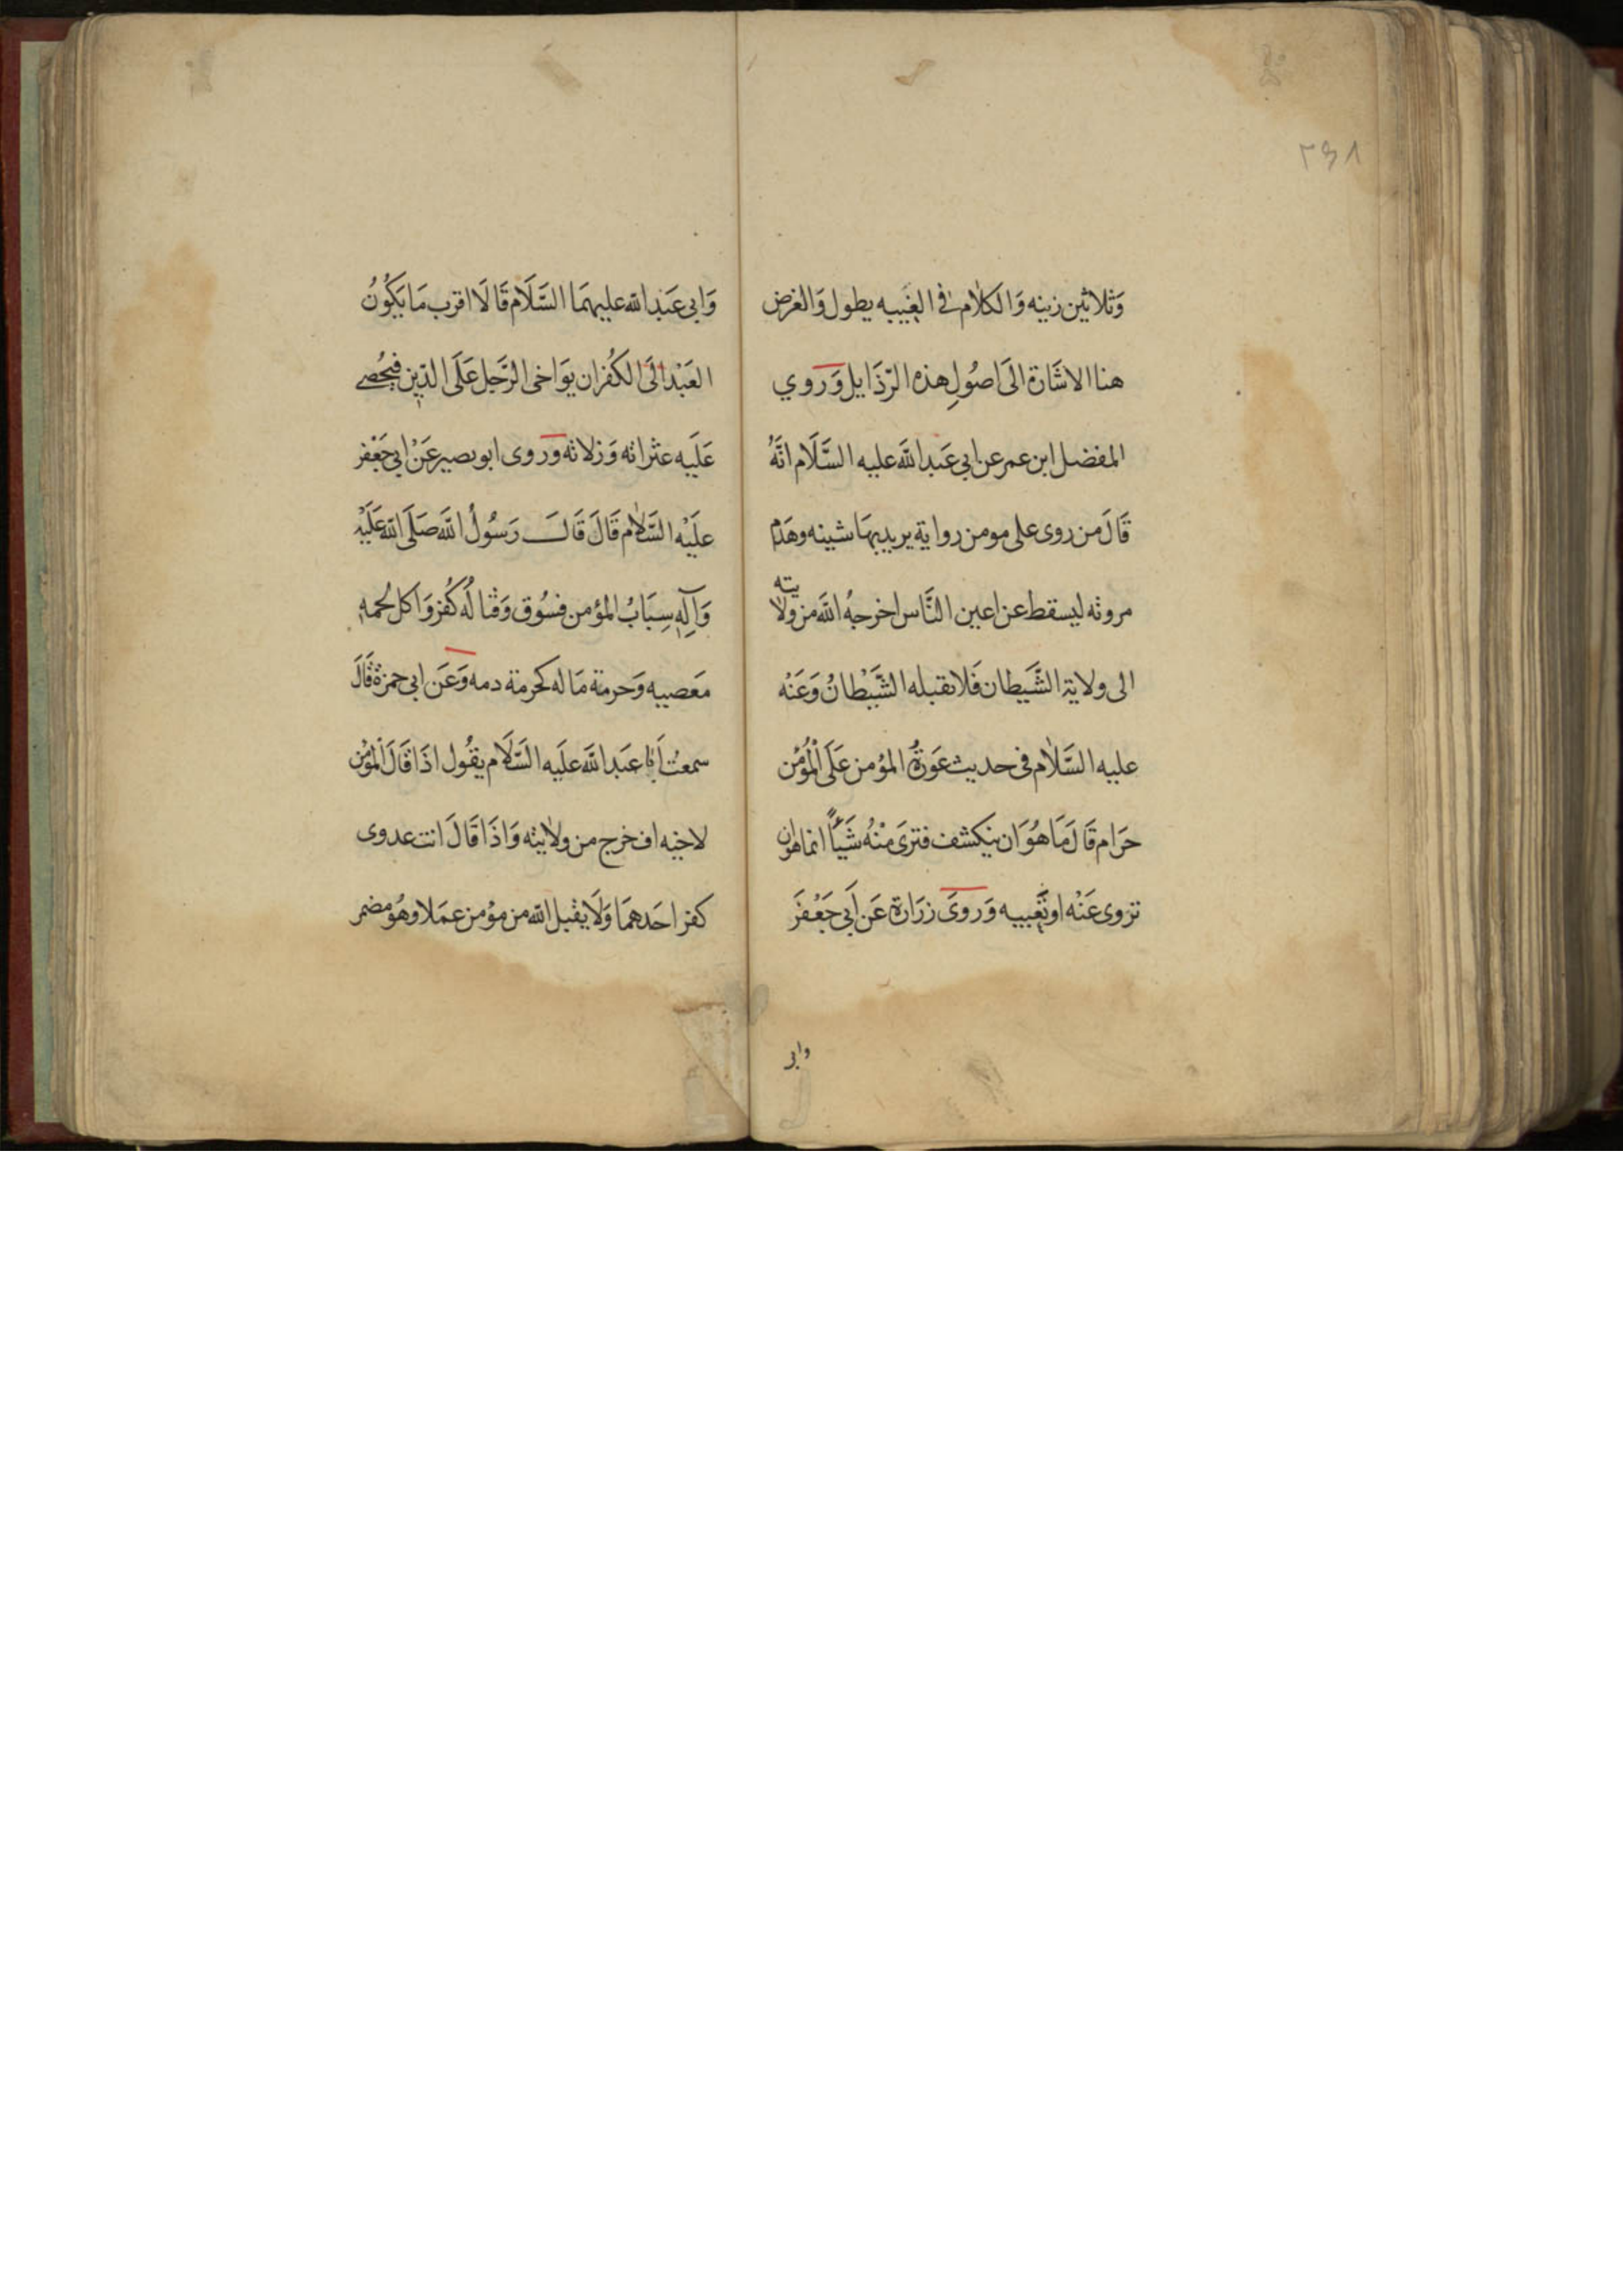 ٢٩١
وَثلاثين زنيه وَالكلام فى الغيبه يطول وَالغرض
هنا الاشَارة الىَ اصُولِ هذه الرّذَايل وَروي
المفضل ابن عمر عن ابي عَبد اللَّه عليه السَّلَام انَّهُ
قَالَ من روى على مومن رواية يريد بهَا شينه وهَدم
مروته ليسقط عن اعين النَّاس اخرجهُ اللَّه من ولايته
الى ولاية الشَّيطان فَلا يقبله الشَّيْطانُ وَعَنْه
عليه السَّلام فى حديث عَورَةُ المؤمن عَلَى الْمُؤْمن
حَرَام قَالَ مَا هُوَ ان ينكشف فترىَ مْنهُ شَيْأً انما هو ان
تروى عَنْه او تَعِيبه وَروىَ زرَارة عَن اَبي جَعْفَر
وابي
وَابي عَبْدِ اللّه عليهمَا السَّلَام قَالَا اقرب مَا يَكُونُ
العَبْد الىَ الكُفران يوَاخى الرَّجل عَلَى الدّين فيحُصے
عَلَيه عثراته وَزلاته وَروى ابو بصير عَنْ ابي جَعْفر
علَيْه السَّلام قَالَ قَالَ رَسُولُ اللَّه صَلَى اللّه عَلَيْه
وَآلِهِ سِبَابُ المؤمن فسُوق وَقتالُه كُفر وَاكل لحُمه
مَعصيه وَحرمة مَا له كحرمة دمه وَعَن ابي حمزة قَالَ
سمعتُ اَبَا عَبد اللَّه علَيه السَّلَام يقُول اذَا قَالَ المْؤُمْن
لاخيه اف خرج من ولايته وَاذَا قَالَ انت عدوى
كفر احَدهمَا وَلَا يقبل اللّه من مؤمن عمَلا وهُو مضمر